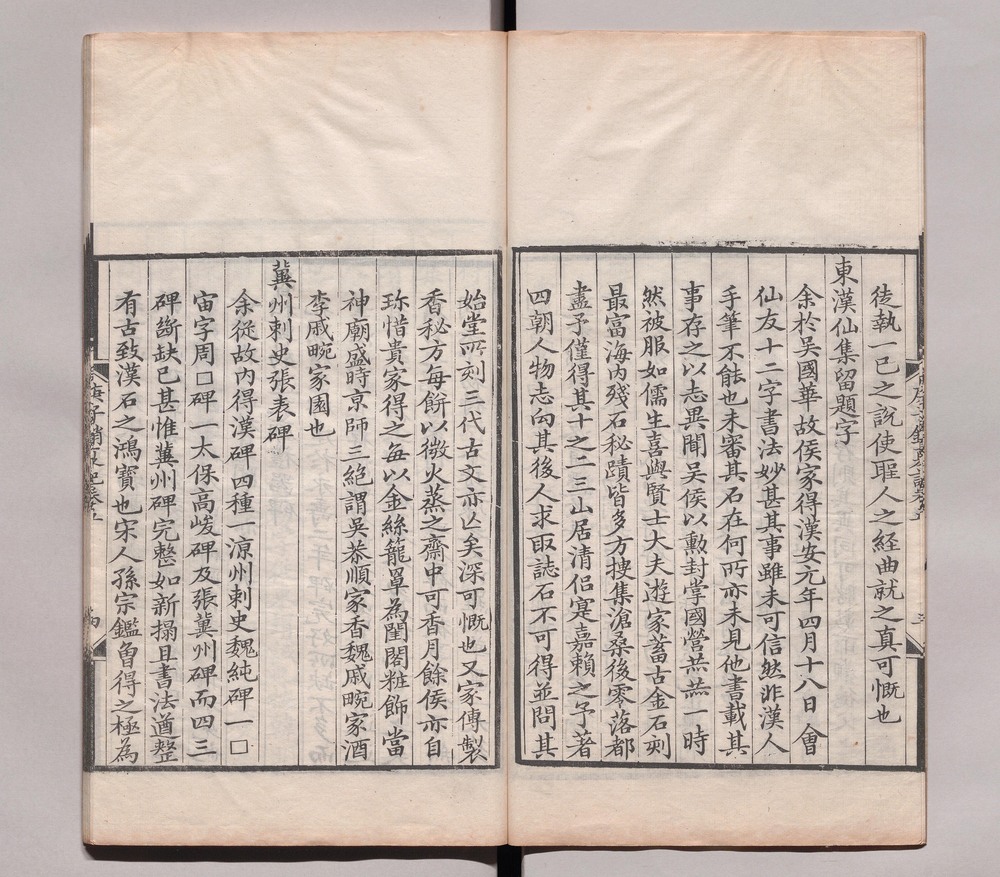 徒執一已之說使聖人之經曲就之真可慨也
東漢仙集留題字
余於吳國華故侯家得漢安元年四月十八日會
仙友十二字書法妙甚其事雖未可信然非漢人
手筆不能也未審其石在何所亦未見他書載其
事存之以志異聞吳侯以勳封掌國營燕燕一時
然被服如儒生喜與賢士大夫遊家蓄古金石刻
最富海內殘石秘蹟皆多方捜集滄桑後零落都
盡予僅得其十之二三山居清侶寔嘉賴之予著
四朝人物志向其後人求取誌石不可得並問其
始堂所刻三代古文亦亾矣深可慨也又家傳製
香秘方每餅以微火蒸之齋中可香月餘侯亦自
珎惜貴家得之每以金絲籠罩為閨閤粧飾當
神廟盛時京師三絕謂吳恭順家香魏戚畹家酒
李戚畹家園也
冀州刺史張表碑
余從故內得漢碑四種一凉州刺史魏純碑一□
宙字周□碑一太保高峻碑及張冀州碑而四三
碑斷缺已甚惟冀州碑完整如新搨且書法遒整
有古致漢石之鴻寶也宋人孫宗鑑曾得之極為